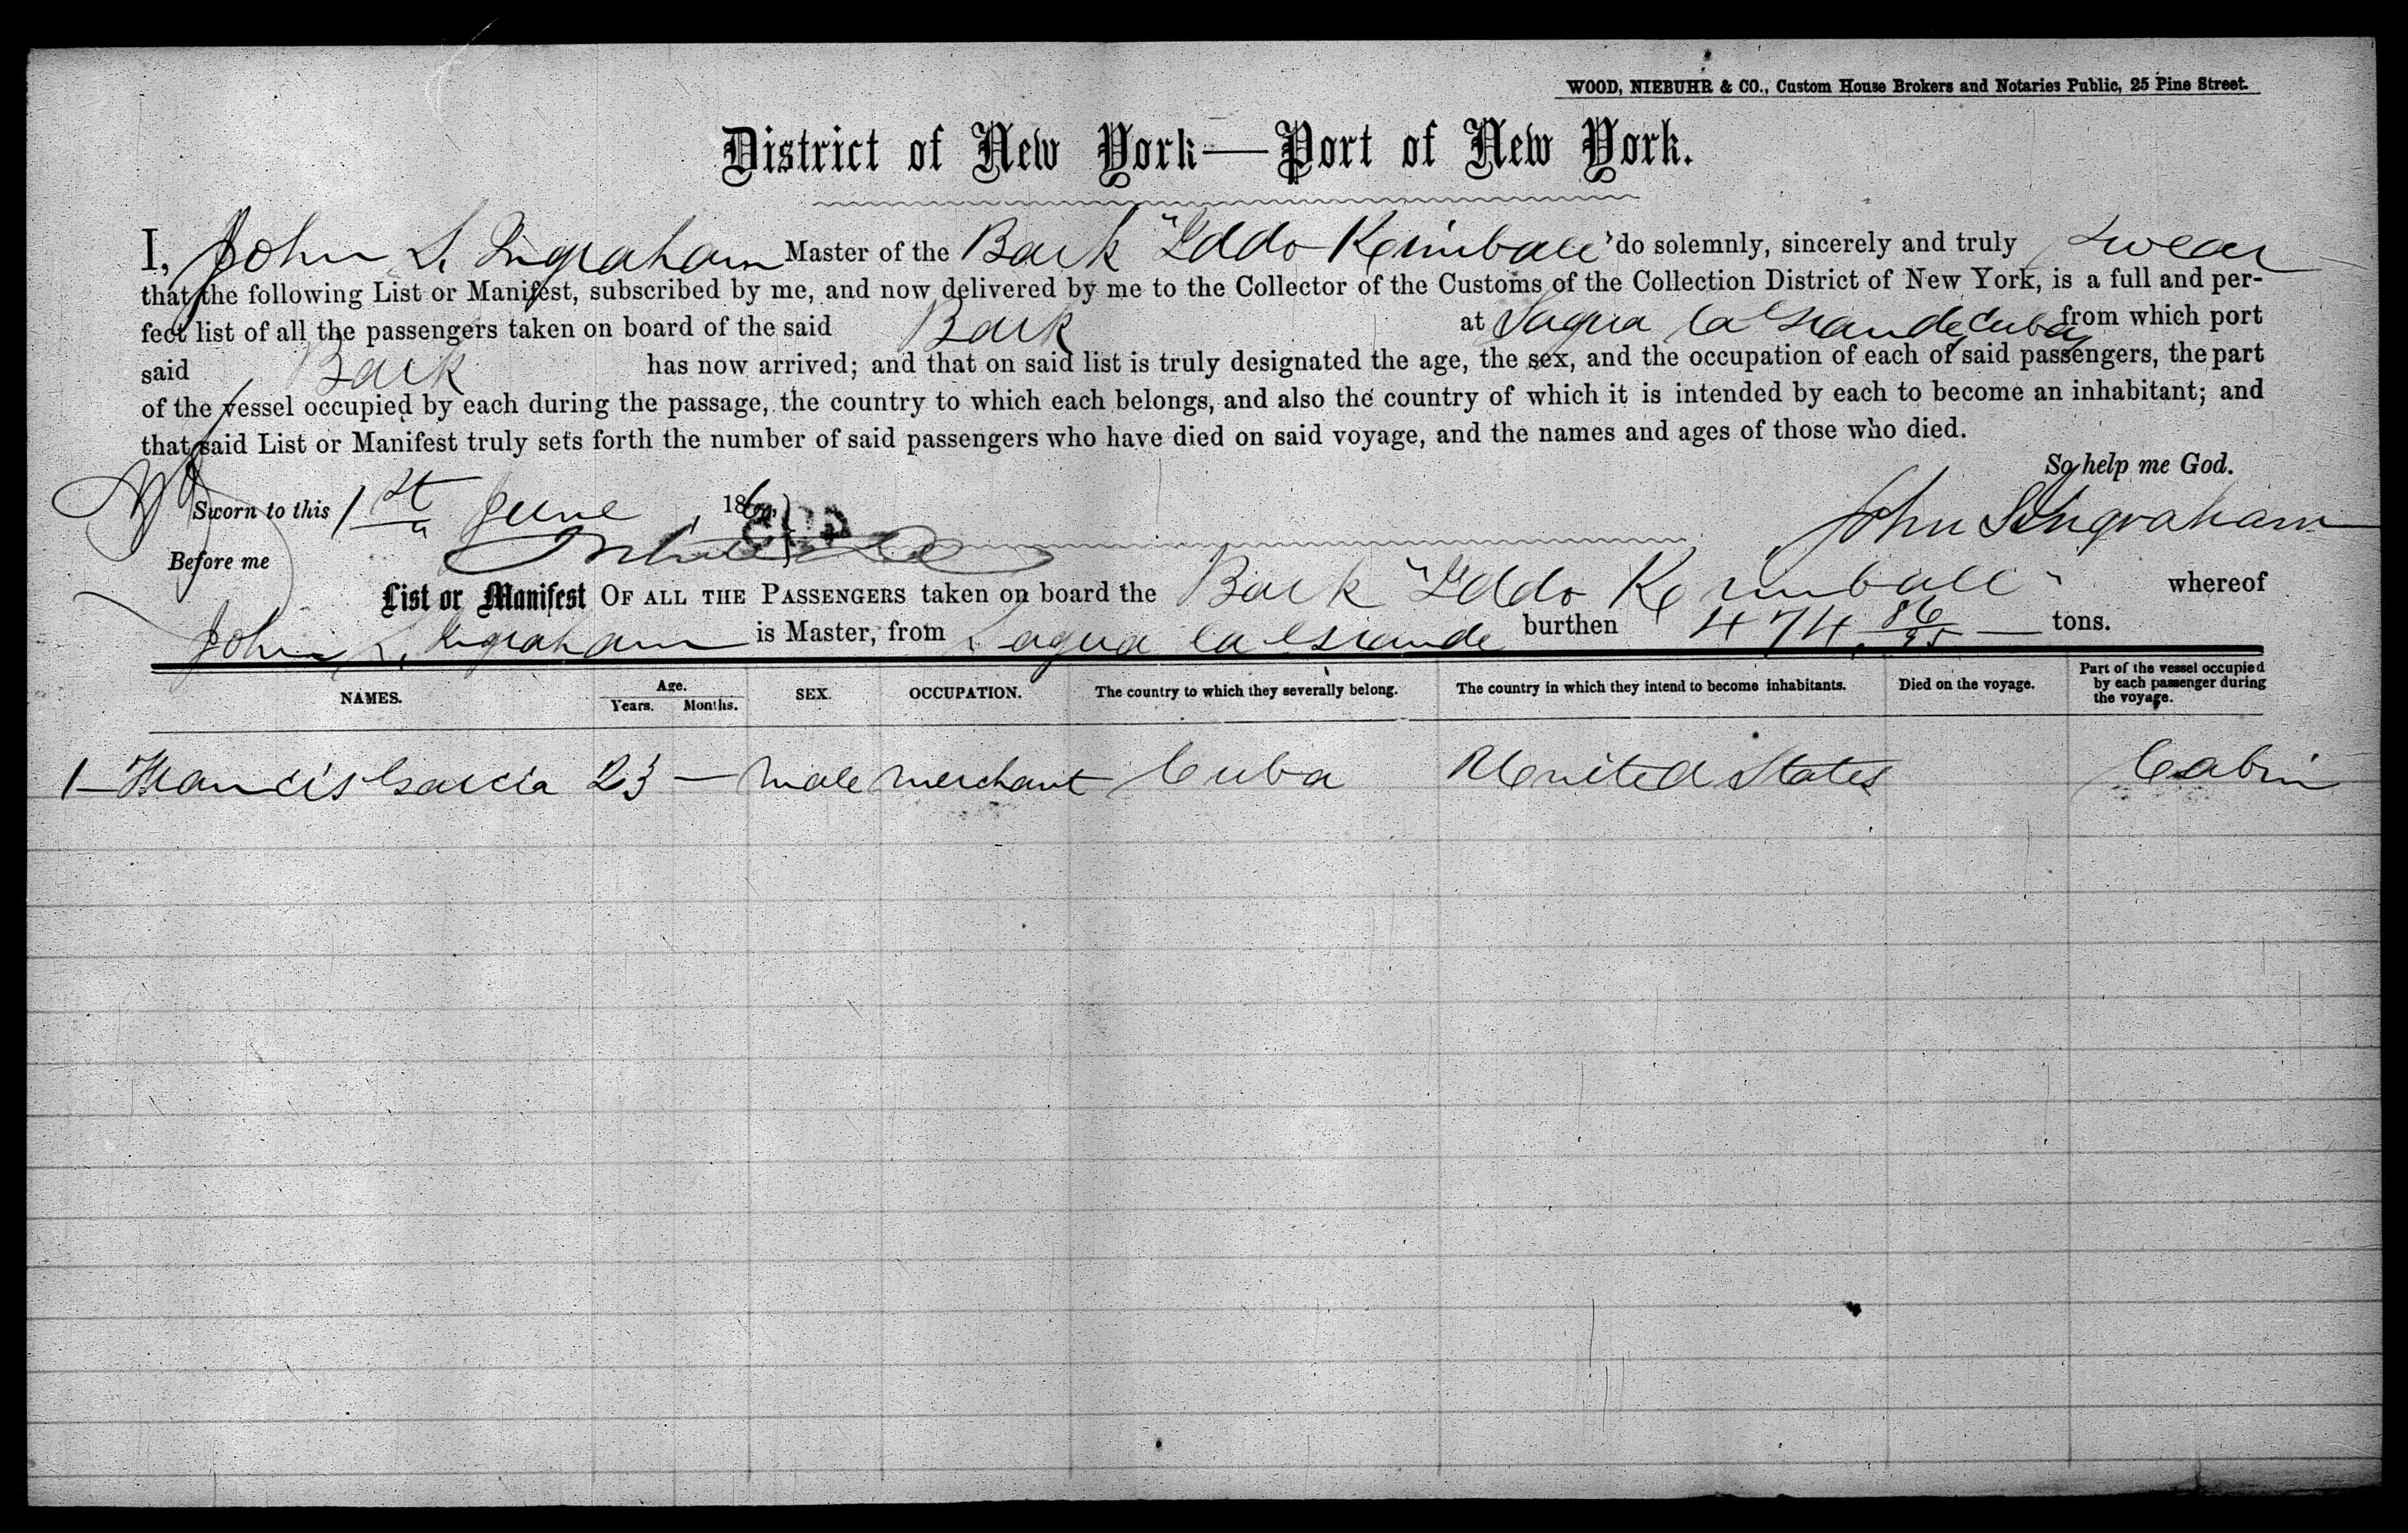 WOOD, NIEBUHR & CO., Custom House Brokers and Notaries Public, 25 Pine Street.
District of New York—Port of New York.
I, John S. Ingraham Master of the Bark "Iddo Kimball" do solemnly, sincerely and truly swear
that the following List or Manifest, subscribed by me, and now delivered by me to the Collector of the Customs of the Collection District of New York, is a full and per-
fect list of all the passengers taken on board of the said Bark at Sagua la Grande, Cuba from which port
said Bark has now arrived; and that on said list is truly designated the age, the sex, and the occupation of each of said passengers, the part
of the vessel occupied by each during the passage, the country to which each belongs, and also the country of which it is intended by each to become an inhabitant; and
that said List or Manifest truly sets forth the number of said passengers who have died on said voyage, and the names and ages of those who died.
So help me God.
Sworn to this 1st June, 186
John S Ingraham
Before me
List or Manifest OF ALL THE PASSENGERS taken on board the Bark "Iddo Kimball" whereof
John S. Ingraham is Master, from Sagua la Grande burthen 474. 86/95 tons.
NAMES. Age. Years. Months. SEX. OCCUPATION. The country to which they severally belong. The country in which they intend to become inhabitants. Died on the voyage. Part of the vessel occupied by each passenger during the voyage.
1 — Francis Garcia 23 — Male Merchant Cuba United States Cabin